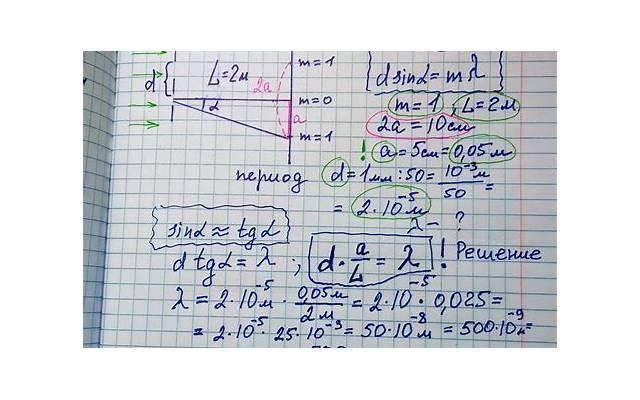 m=1
d { L=2м 2a
d sinα = mλ
m=0
α a
m=1, L=2м
2a=10см
m=1
! a=5см=0,05м
период
d=1мм:50= 10⁻³м/50 =
= 2·10⁻⁵м
λ - ?
sinα ≈ tgα
d tgα = λ ; d· a/L = λ ! Решение
λ = 2·10⁻⁵м · 0,05м/2м = 2·10⁻⁵·0,025=
= 2·10⁻⁵·25·10⁻³=50·10⁻⁸=500·10⁻⁹м=